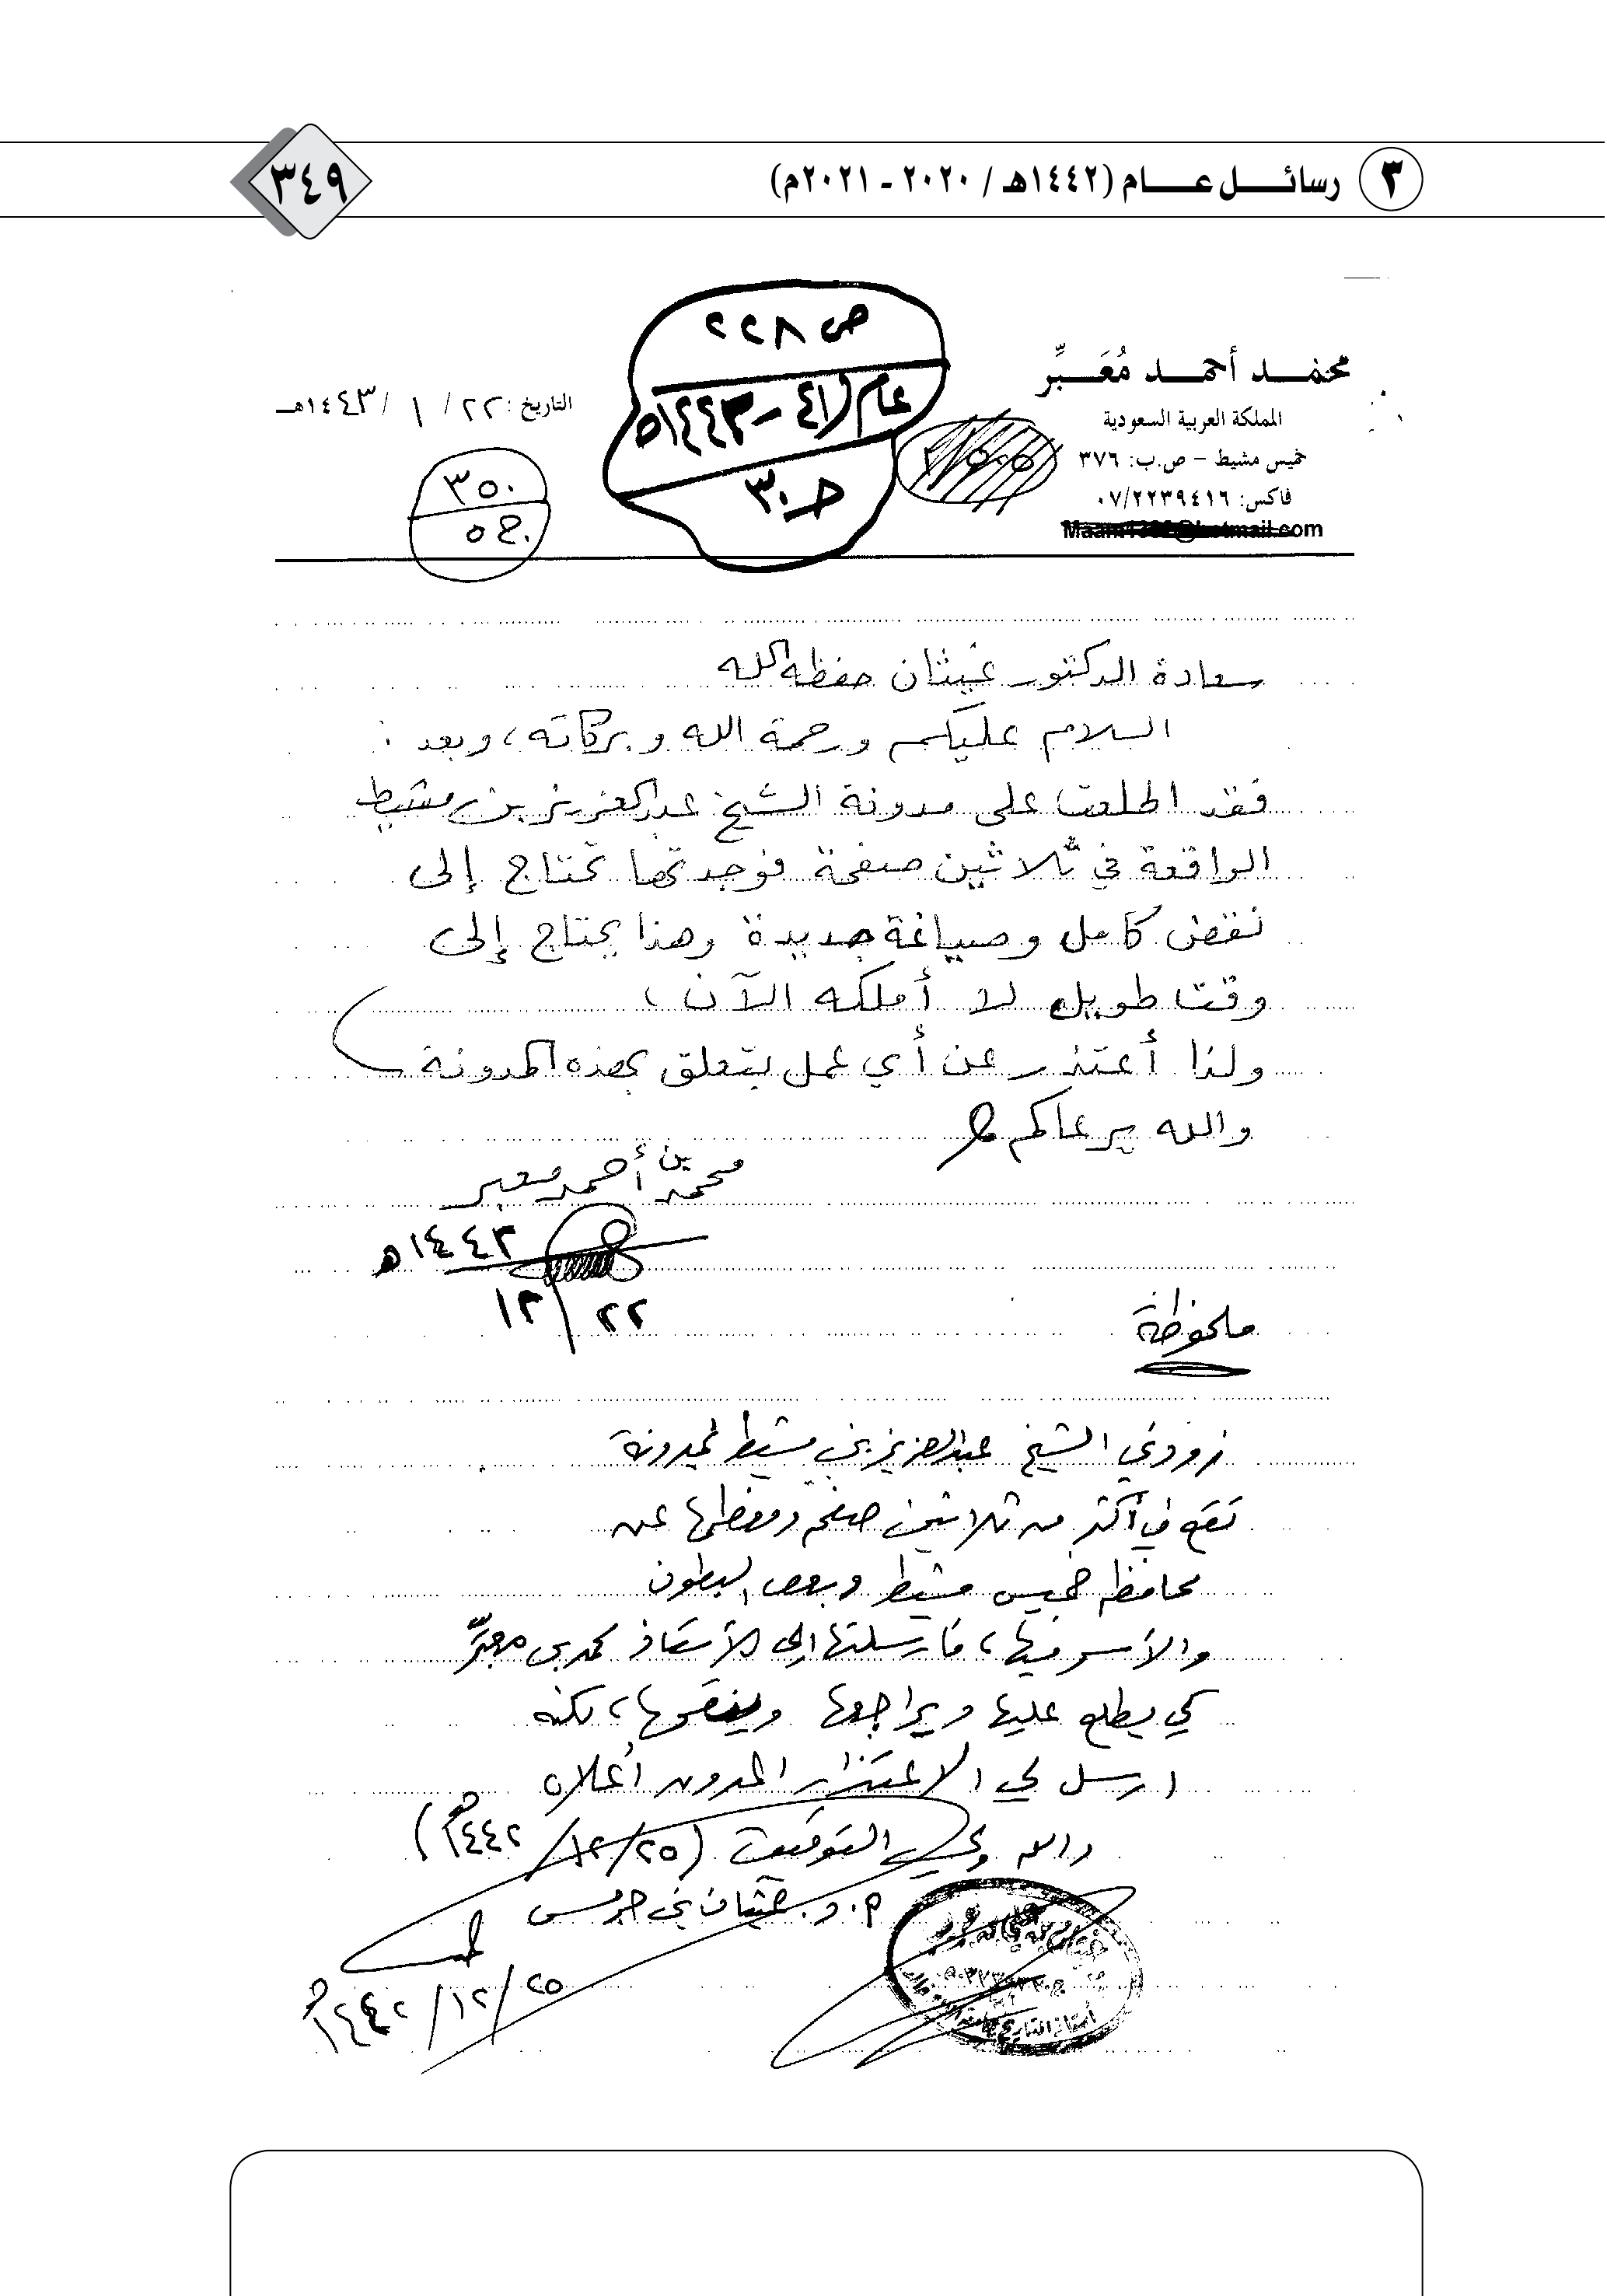 ٣ رسائل عام (١٤٤٢هـ / ٢٠٢٠ - ٢٠٢١م)
٣٤٩
محمد أحمد مُعَبِّر
المملكة العربية السعودية
خميس مشيط – ص.ب: ٣٧٦
فاكس: ٠٧/٢٢٣٩٤١٦
ص ٢٢٨
عام (٤١ - ١٤٤٣هـ
حـ ٣٠
التاريخ: ٢٢ / ١ / ١٤٤٣هـ
٣٥٠
سعادة الدكتور غيثان حفظه الله
السلام عليكم ورحمة الله وبركاته، وبعد:
فقد اطلعت على مدونة الشيخ عبدالعزيز بن مشيط
الواقعة في ثلاثين صفحة فوجدتها تحتاج إلى
نقض كامل وصياغة جديدة وهذا يحتاج إلى
وقت طويل لا أملكه الآن،
ولذا أعتذر عن أي عمل يتعلق بهذه المدونة
والله يرعاكم
محمد بن أحمد معبر
١٤٤٣هـ
٢٢ / ١٢
ملحوظة
زودني الشيخ عبدالعزيز بن مشيط بمدونة
تقع في أكثر من ثلاثين صفحة ومعظمها عن
محافظة خميس مشيط وبعض البطون
والأسر فيها، فأرسلتها إلى الأستاذ محمد بن معبّر
كي يطلع عليها ويراجعها وينقحها، لكنه
ارسل لي الاعتذار المدون أعلاه
والله ولي التوفيق (٢٥/ ١٢/ ١٤٤٢هـ)
أ. د. غيثان بن جريس
٢٥ / ١٢ / ١٤٤٢هـ